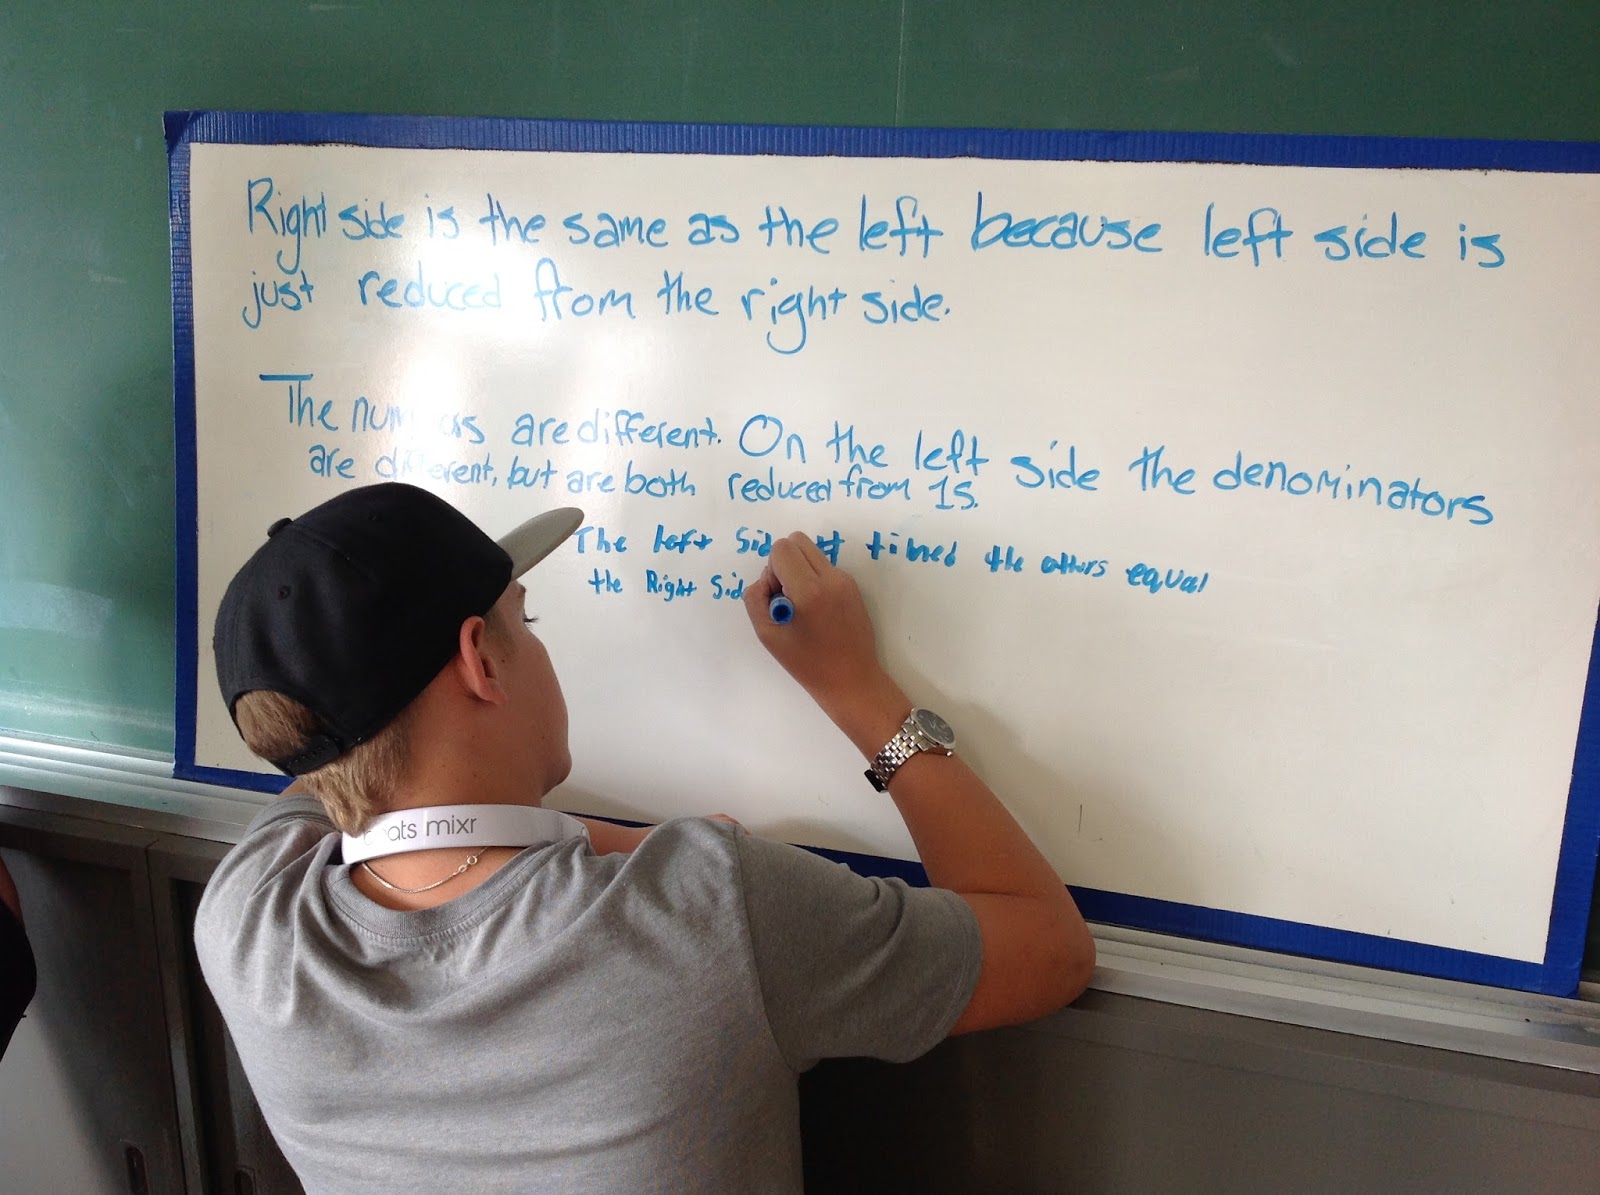 Right side is the same as the left because left side is
just reduced from the right side.
The are different. On the left side the denominators
are different, but are both reduced from 15.
The left timed the others equal
the Right Sid
beats mixr